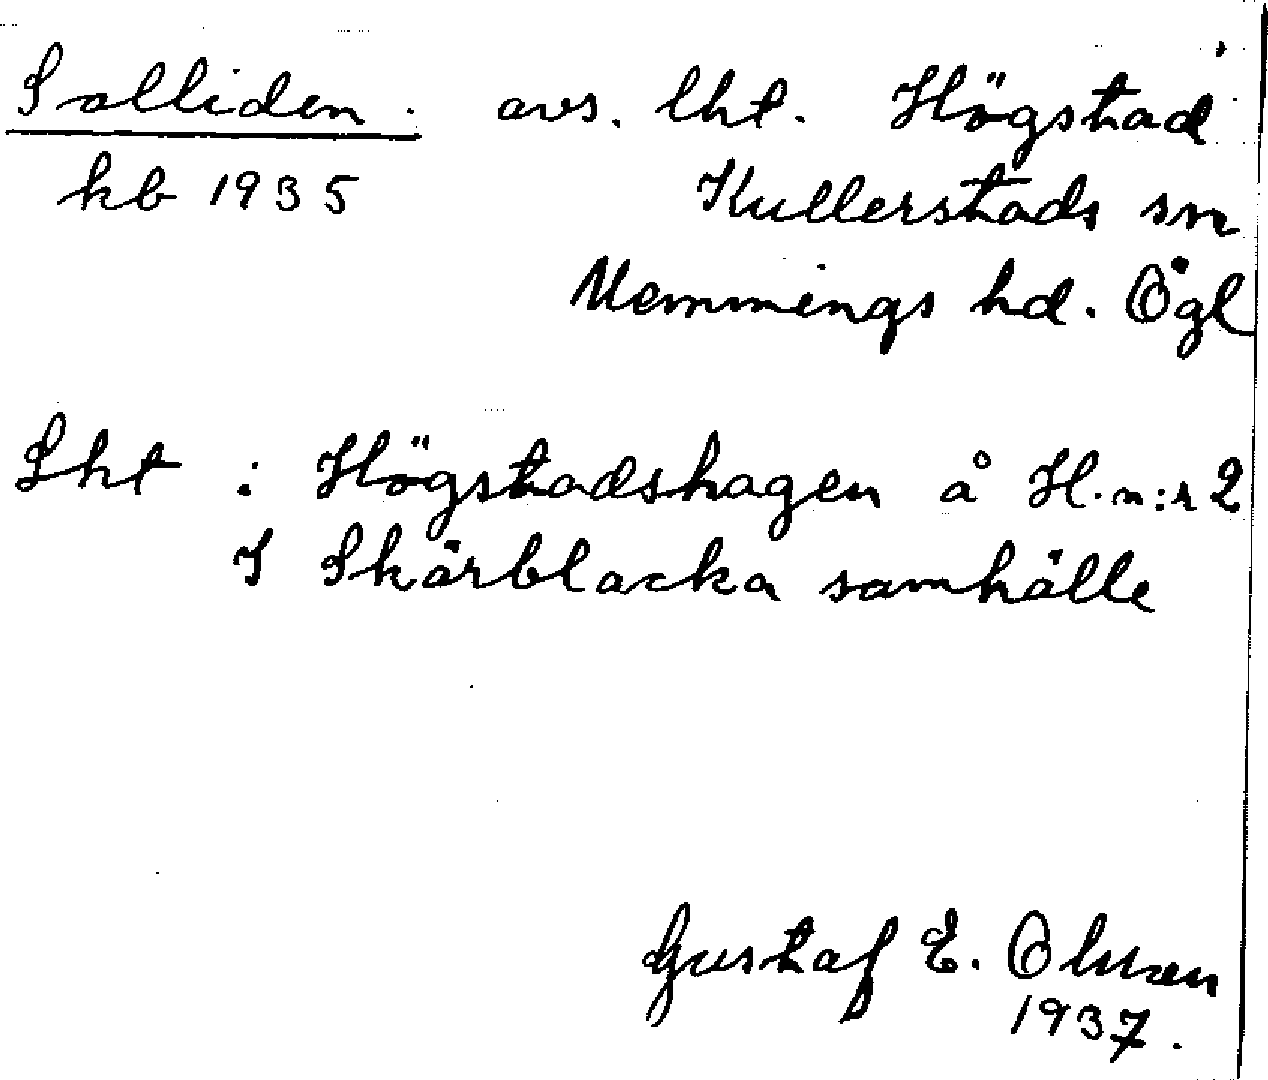 Solliden. avs. lht. Högstad
kb 1935 Kullerstads sn
Memmings hd. Ögl
Lht : Högstadshagen å H. n:r 2
I Skärblacka samhälle
Gustaf E. Olsson
1937.